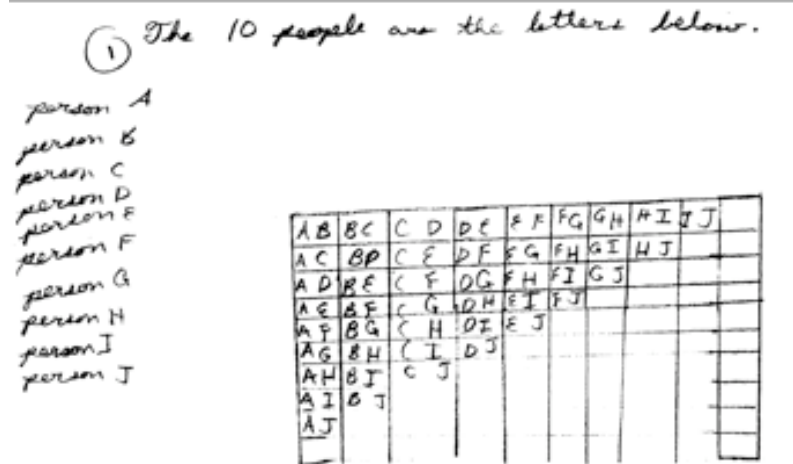 ① The 10 people are the letters below.
person A
person B
person C
person D
person E
person F
person G
person H
person I
person J
AB BC CD DE EF FG GH HI IJ
AC BD CE DF EG FH GI HJ
AD BE CF DG EH FI GJ
AE BF CG DH EI FJ
AF BG CH DI EJ
AG BH CI DJ
AH BI CJ
AI BJ
AJ